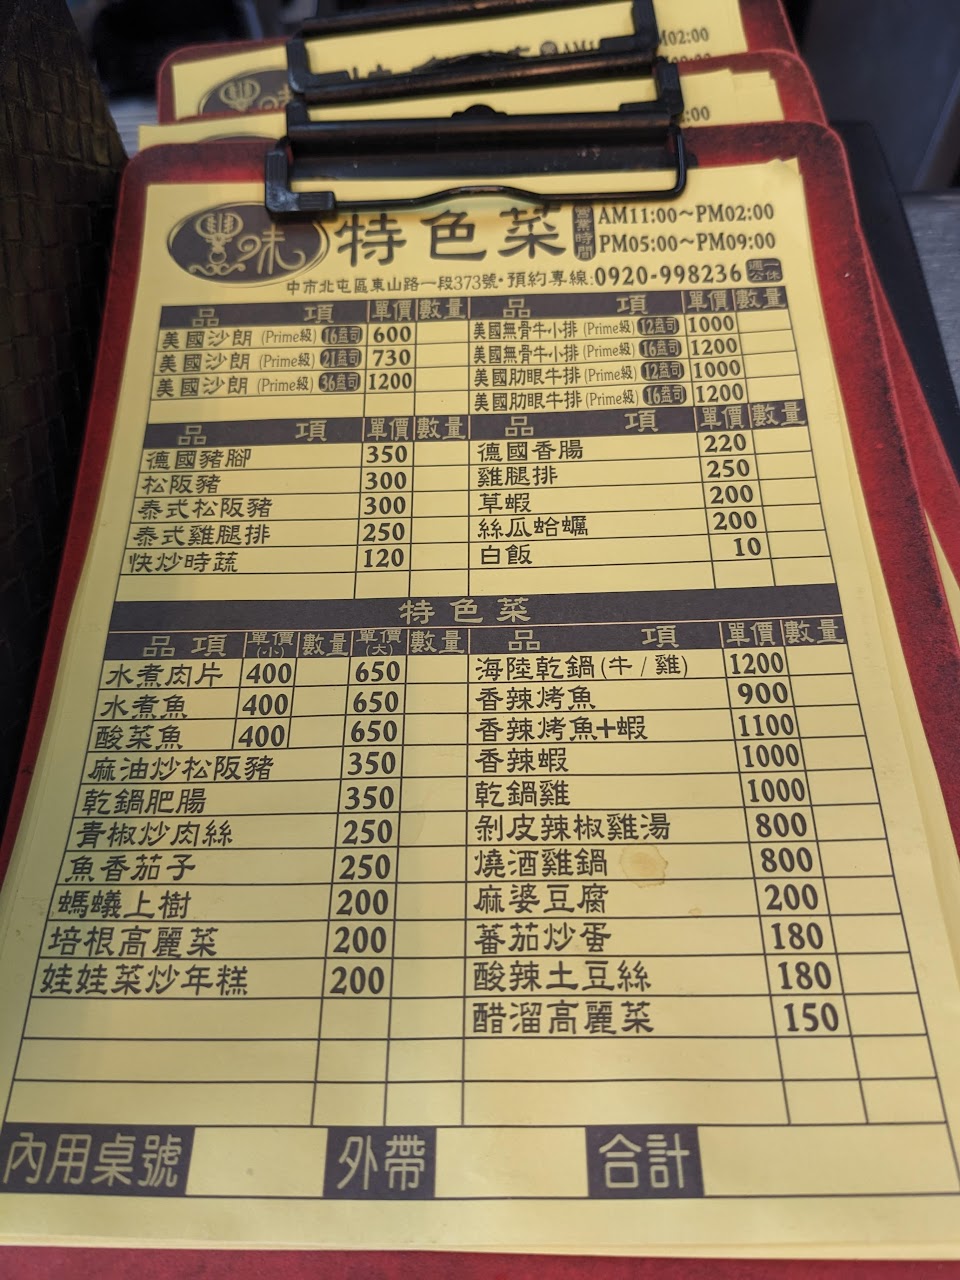 AM1
M02:00
:00
味 特色菜 營業時間 AM11:00~PM02:00
PM05:00~PM09:00
中市北屯區東山路一段373號・預約專線:0920-998236 週一公休
品 項 單價 數量 品 項 單價 數量
美國沙朗 (Prime級) 16盎司 600 美國無骨牛小排 (Prime級) 12盎司 1000
美國沙朗 (Prime級) 21盎司 730 美國無骨牛小排 (Prime級) 16盎司 1200
美國沙朗 (Prime級) 36盎司 1200 美國肋眼牛排 (Prime級) 12盎司 1000
美國肋眼牛排 (Prime級) 16盎司 1200
品 項 單價 數量 品 項 單價 數量
德國豬腳 350 德國香腸 220
松阪豬 300 雞腿排 250
泰式松阪豬 300 草蝦 200
泰式雞腿排 250 絲瓜蛤蠣 200
快炒時蔬 120 白飯 10
特色菜
品 項 單價(小) 數量 單價(大) 數量 品 項 單價 數量
水煮肉片 400 650 海陸乾鍋(牛/雞) 1200
水煮魚 400 650 香辣烤魚 900
酸菜魚 400 650 香辣烤魚+蝦 1100
麻油炒松阪豬 350 香辣蝦 1000
乾鍋肥腸 350 乾鍋雞 1000
青椒炒肉絲 250 剝皮辣椒雞湯 800
魚香茄子 250 燒酒雞鍋 800
螞蟻上樹 200 麻婆豆腐 200
培根高麗菜 200 蕃茄炒蛋 180
娃娃菜炒年糕 200 酸辣土豆絲 180
醋溜高麗菜 150
內用桌號 外帶 合計